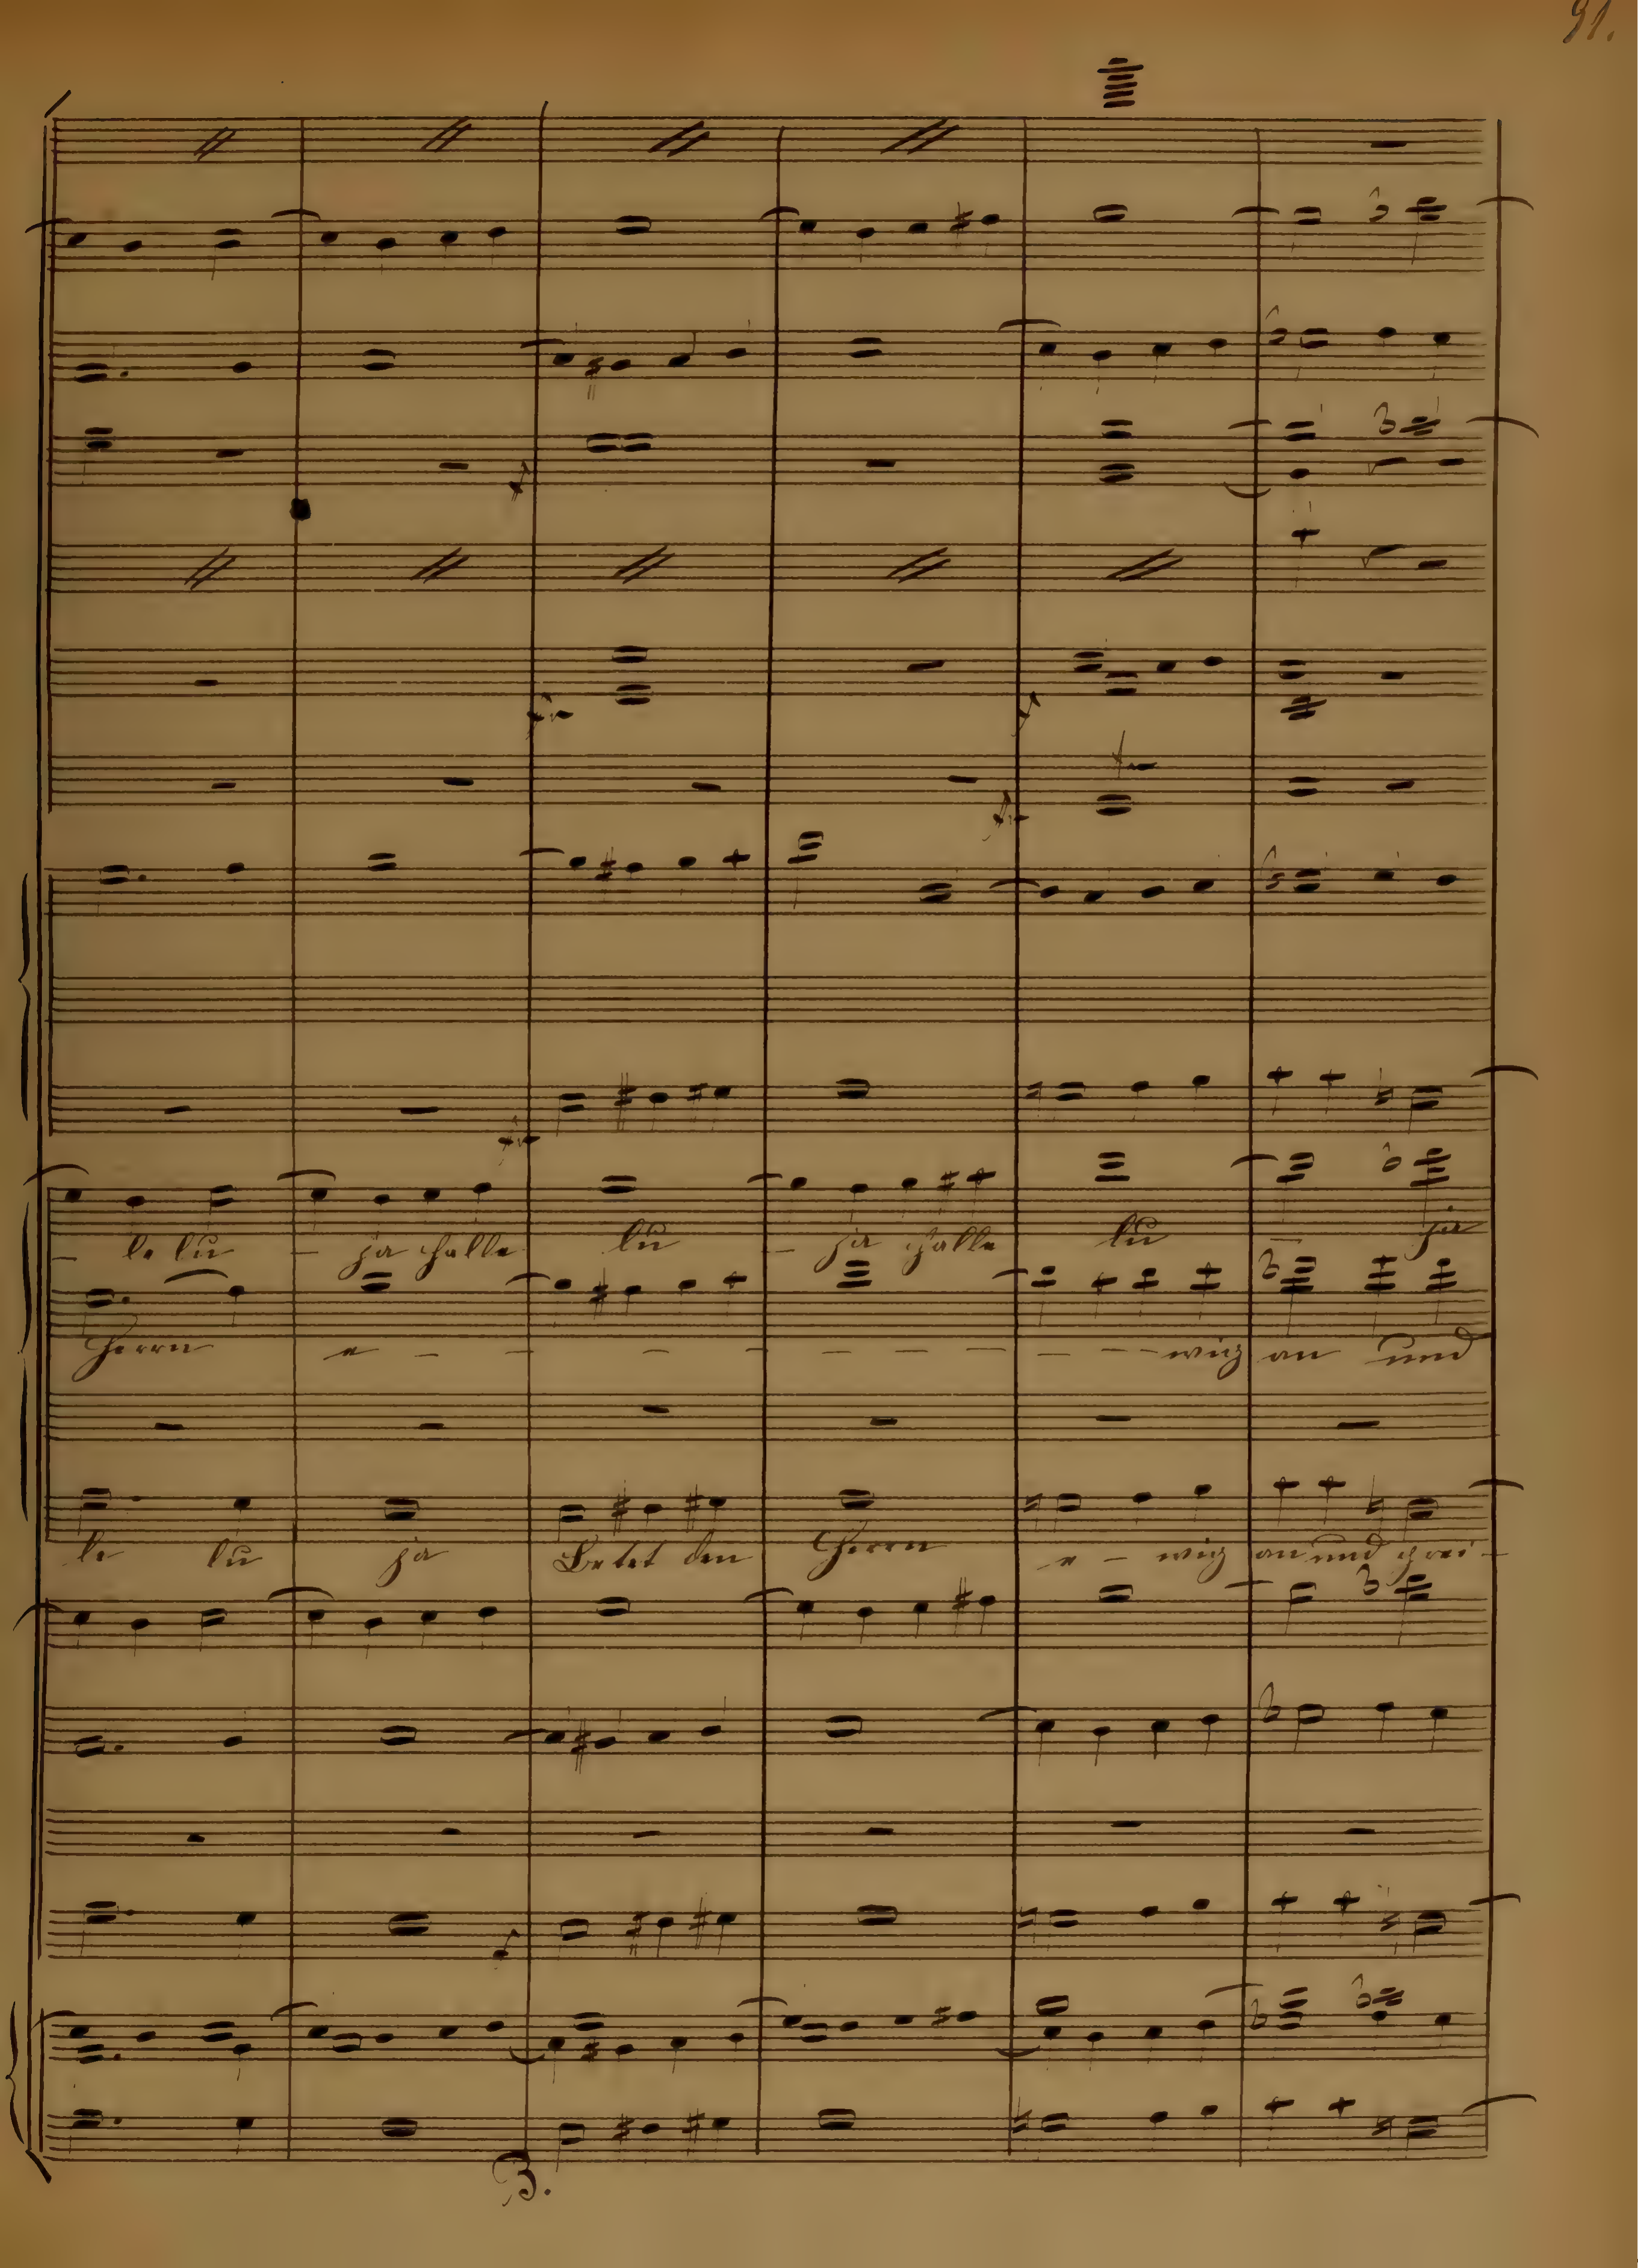 91.
le lu - ja halle lu - ja halle lu - ja
Herrn e - - - - - - - - - wig an und
le lu ja Betet den Herrn e - wig an und prei -
3.